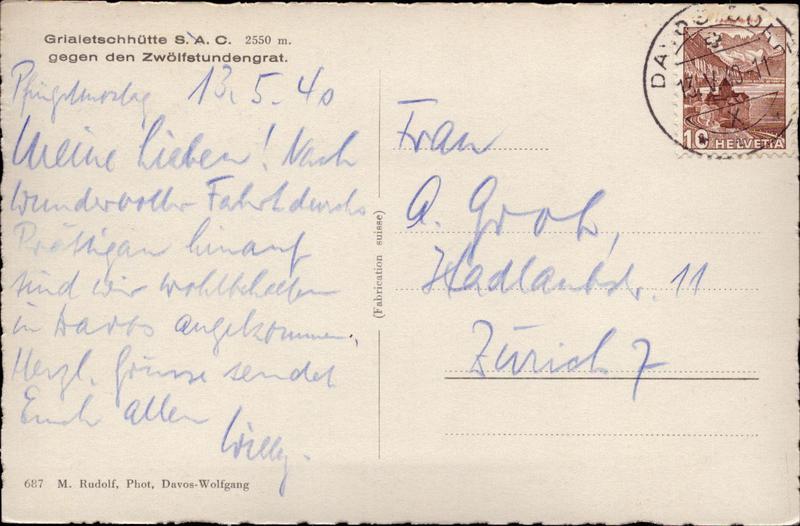 Grialetschhütte S.A.C. 2550 m.
gegen den Zwölfstundengrat.
Pfingstmontag 13.5.40
Meine Lieben! Nach
wundervoller Fahrt durchs
Prättigau hinauf
sind wir wohlbehalten
in Davos angekommen.
Herzl. Grüsse sendet
Euch allen
Willy.
687 M. Rudolf, Phot, Davos-Wolfgang
(Fabrication suisse)
DAVOS DORF
13.V.40-11
10 HELVETIA
Frau
A. Grob,
Hadlaubstr. 11
Zürich 7